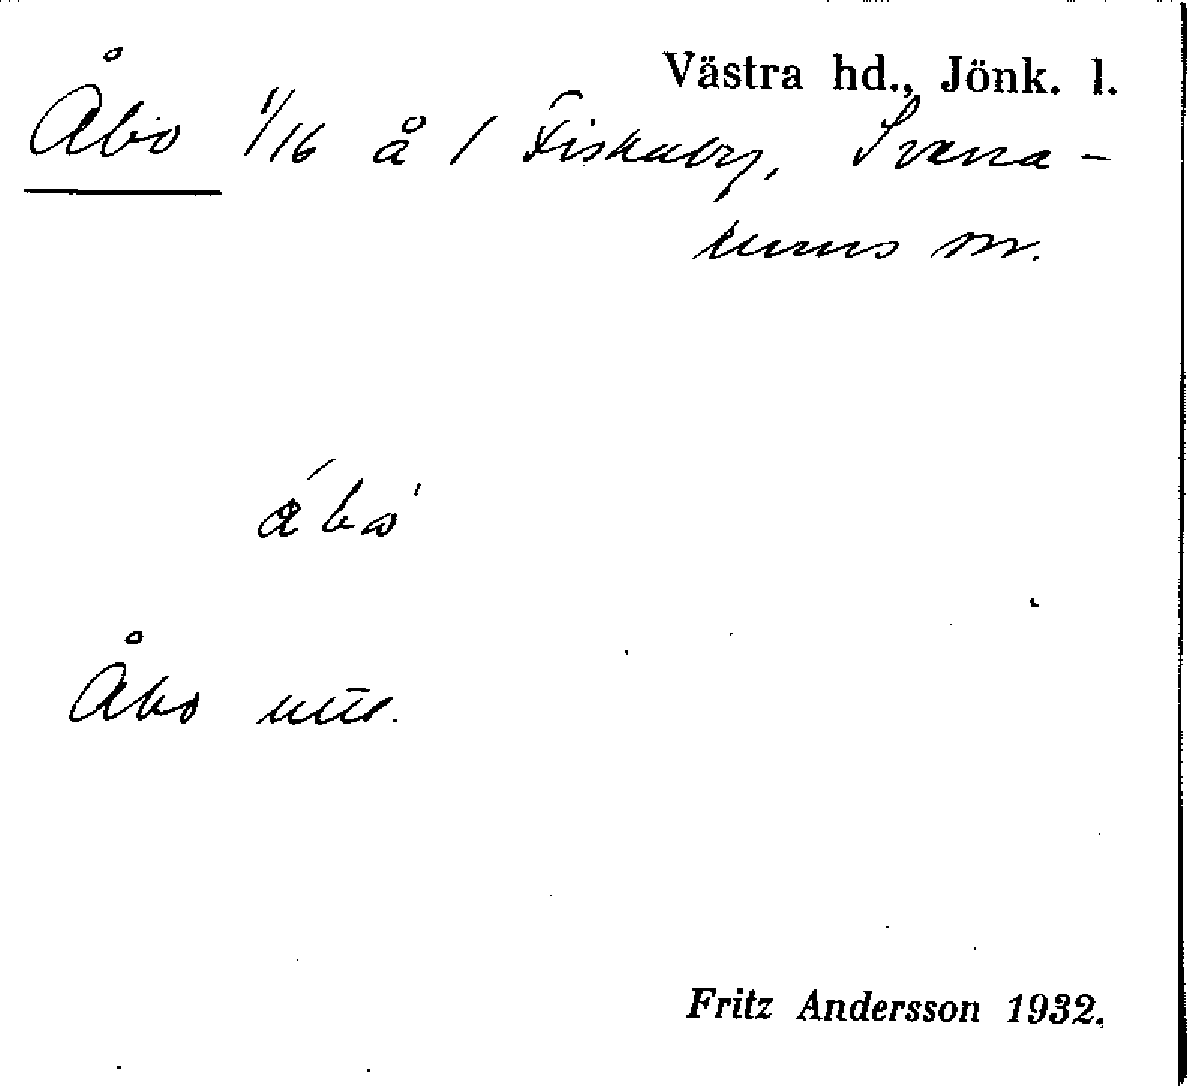 Västra hd., Jönk. l.
Åbo 1/16 å 1 Fiskaby, Svena-
rums sn.
Åbo
Fritz Andersson 1932.